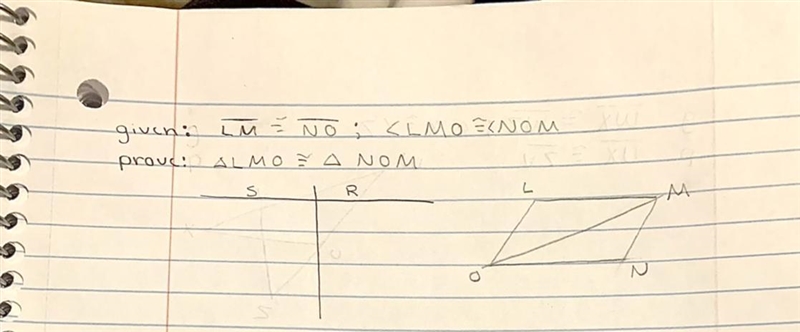 given: LM ≅ NO ; <LMO ≅ <NOM
prove: △LMO ≅ △ NOM
S R
L M
O N